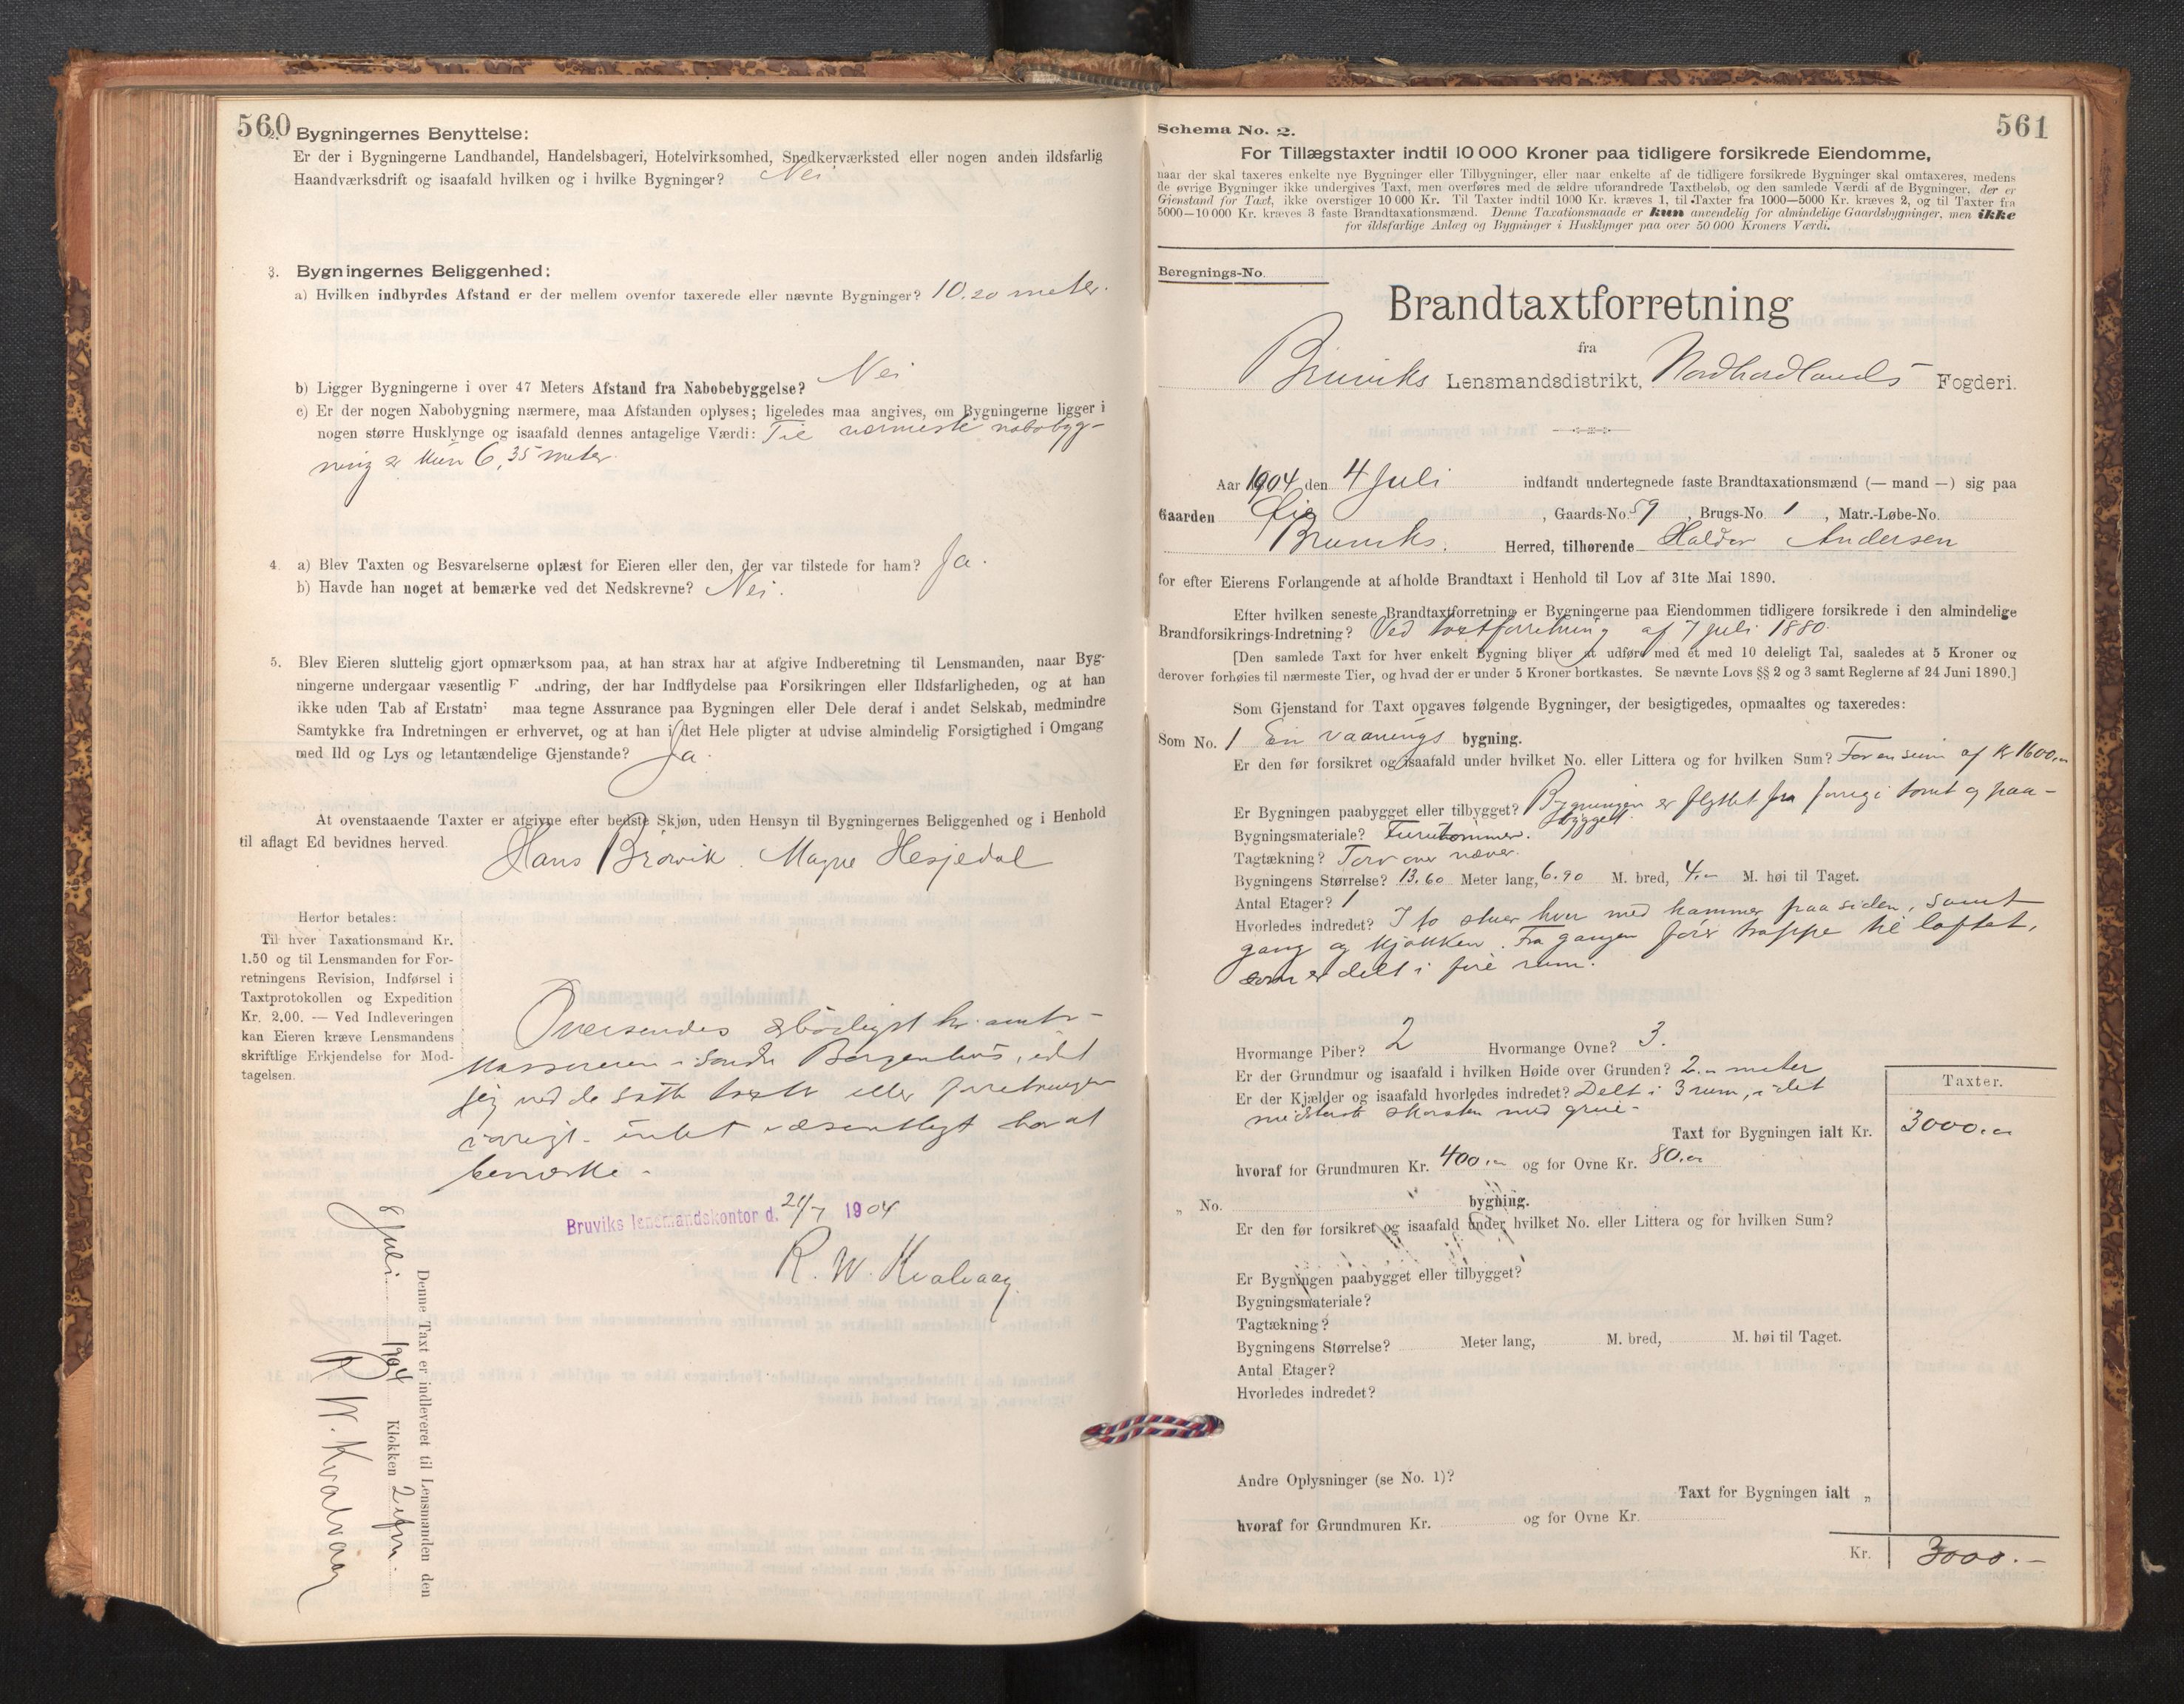 560
2. Bygningernes Benyttelse:
Er der i Bygningerne Landhandel, Handelsbageri, Hotelvirksomhed, Snedkerværksted eller nogen anden ildsfarlig
Haandværksdrift og isaafald hvilken og i hvilke Bygninger? Nei
3. Bygningernes Beliggenhed:
a) Hvilken indbyrdes Afstand er der mellem ovenfor taxerede eller nævnte Bygninger? 10.20 meter.
b) Ligger Bygningerne i over 47 Meters Afstand fra Nabobebyggelse? Nei
c) Er der nogen Nabobygning nærmere, maa Afstanden oplyses; ligeledes maa angives, om Bygningerne ligger i
nogen større Husklynge og isaafald dennes antagelige Værdi: Til nærmeste nabobyg-
ning er kun 6,35 meter.
4. a) Blev Taxten og Besvarelserne oplæst for Eieren eller den, der var tilstede for ham? Ja.
b) Havde han noget at bemærke ved det Nedskrevne? Nei.
5. Blev Eieren sluttelig gjort opmærksom paa, at han strax har at afgive Indberetning til Lensmanden, naar Byg-
ningerne undergaar væsentlig F andring, der har Indflydelse paa Forsikringen eller Ildsfarligheden, og at han
ikke uden Tab af Erstatn maa tegne Assurance paa Bygningen eller Dele deraf i andet Selskab, medmindre
Samtykke fra Indretningen er erhvervet, og at han i det Hele pligter at udvise almindelig Forsigtighed i Omgang
med Ild og Lys og letantændelige Gjenstande? Ja.
At ovenstaaende Taxter er afgivne efter bedste Skjøn, uden Hensyn til Bygningernes Beliggenhed og i Henhold
til aflagt Ed bevidnes herved.
Hans Brøvik. Magne Hesjedal
Herfor betales:
Til hver Taxationsmand Kr.
1.50 og til Lensmanden for For-
retningens Revision, Indførsel i
Taxtprotokollen og Expedition
Kr. 2.00. — Ved Indleveringen
kan Eieren kræve Lensmandens
skriftlige Erkjendelse for Mod-
tagelsen.
Oversendes ærbødigst hr. amts-
kassereren i Søndre Bergenhus, idet
jeg ved de satte taxter eller forretningen
iøvrigt intet væsentligt har at
bemærke -
Bruviks lensmandskontor d. 21/7 1904
R. W. Kvalvaag
Denne Taxt er indleveret til Lensmanden den
8 Juli 1904 Klokken 2 efm.
R W. Kvalvaag
561
Schema No. 2.
For Tillægstaxter indtil 10 000 Kroner paa tidligere forsikrede Eiendomme,
naar der skal taxeres enkelte nye Bygninger eller Tilbygninger, eller naar enkelte af de tidligere forsikrede Bygninger skal omtaxeres, medens
de øvrige Bygninger ikke undergives Taxt, men overføres med de ældre uforandrede Taxtbeløb, og den samlede Værdi af de Bygninger, der er
Gjenstand for Taxt, ikke overstiger 10 000 Kr. Til Taxter indtil 1000 Kr. kræves 1, til Taxter fra 1000—5000 Kr. kræves 2, og til Taxter fra
5000—10 000 Kr. kræves 3 faste Brandtaxationsmænd. Denne Taxationsmaade er kun anvendelig for almindelige Gaardsbygninger, men ikke
for ildsfarlige Anlæg og Bygninger i Husklynger paa over 50 000 Kroners Værdi.
Beregnings-No.
Brandtaxtforretning
fra
Bruviks Lensmandsdistrikt, Nordhordlands Fogderi.
Aar 1904 den 4 Juli indfandt undertegnede faste Brandtaxationsmænd (— mand —) sig paa
Gaarden Øie, Gaards-No. 59, Brugs-No. 1, Matr.-Løbe-No.
Bruviks. Herred, tilhørende Haldor Andersen
for efter Eierens Forlangende at afholde Brandtaxt i Henhold til Lov af 31te Mai 1890.
Efter hvilken seneste Brandtaxtforretning er Bygningerne paa Eiendommen tidligere forsikrede i den almindelige
Brandforsikrings-Indretning? Ved taxtforretning af 7 juli 1880.
[Den samlede Taxt for hver enkelt Bygning bliver at udføre med et med 10 deleligt Tal, saaledes at 5 Kroner og
derover forhøies til nærmeste Tier, og hvad der er under 5 Kroner bortkastes. Se nævnte Lovs §§ 2 og 3 samt Reglerne af 24 Juni 1890.]
Som Gjenstand for Taxt opgaves følgende Bygninger, der besigtigedes, opmaaltes og taxeredes:
Som No. 1 En vaanings bygning.
Er den før forsikret og isaafald under hvilket No. eller Littera og for hvilken Sum? For en sum af Kr 1600,00
Er Bygningen paabygget eller tilbygget? Bygningen er flyttet fra forrige tomt og paa-
bygget
Bygningsmateriale? Furutømmer.
Tagtækning? Torv over næver.
Bygningens Størrelse? 13.60 Meter lang, 6.90 M. bred, 4,00 M. høi til Taget.
Antal Etager? 1
Hvorledes indredet? I to stuer hver med kammer paa siden, samt
gang og kjøkken. Fra gangen fører trappe til loftet,
som er delt i fire rum.
Hvormange Piber? 2 Hvormange Ovne? 3.
Er der Grundmur og isaafald i hvilken Høide over Grunden? 2,00 meter
Er der Kjælder og isaafald hvorledes indredet? Delt i 3 rum, i det
midterste skorsten med grue.
Taxter.
Taxt for Bygningen ialt Kr. 3000,00
hvoraf for Grundmuren Kr. 400,00 og for Ovne Kr. 80,00
„ No. bygning.
Er den før forsikret og isaafald under hvilket No. eller Littera og for hvilken Sum?
Er Bygningen paabygget eller tilbygget?
Bygningsmateriale?
Tagtækning?
Bygningens Størrelse? Meter lang, M. bred, M. høi til Taget.
Antal Etager?
Hvorledes indredet?
Andre Oplysninger (se No. 1)?
Taxt for Bygningen ialt „
hvoraf for Grundmuren Kr. og for Ovne Kr.
Kr. 3000.-